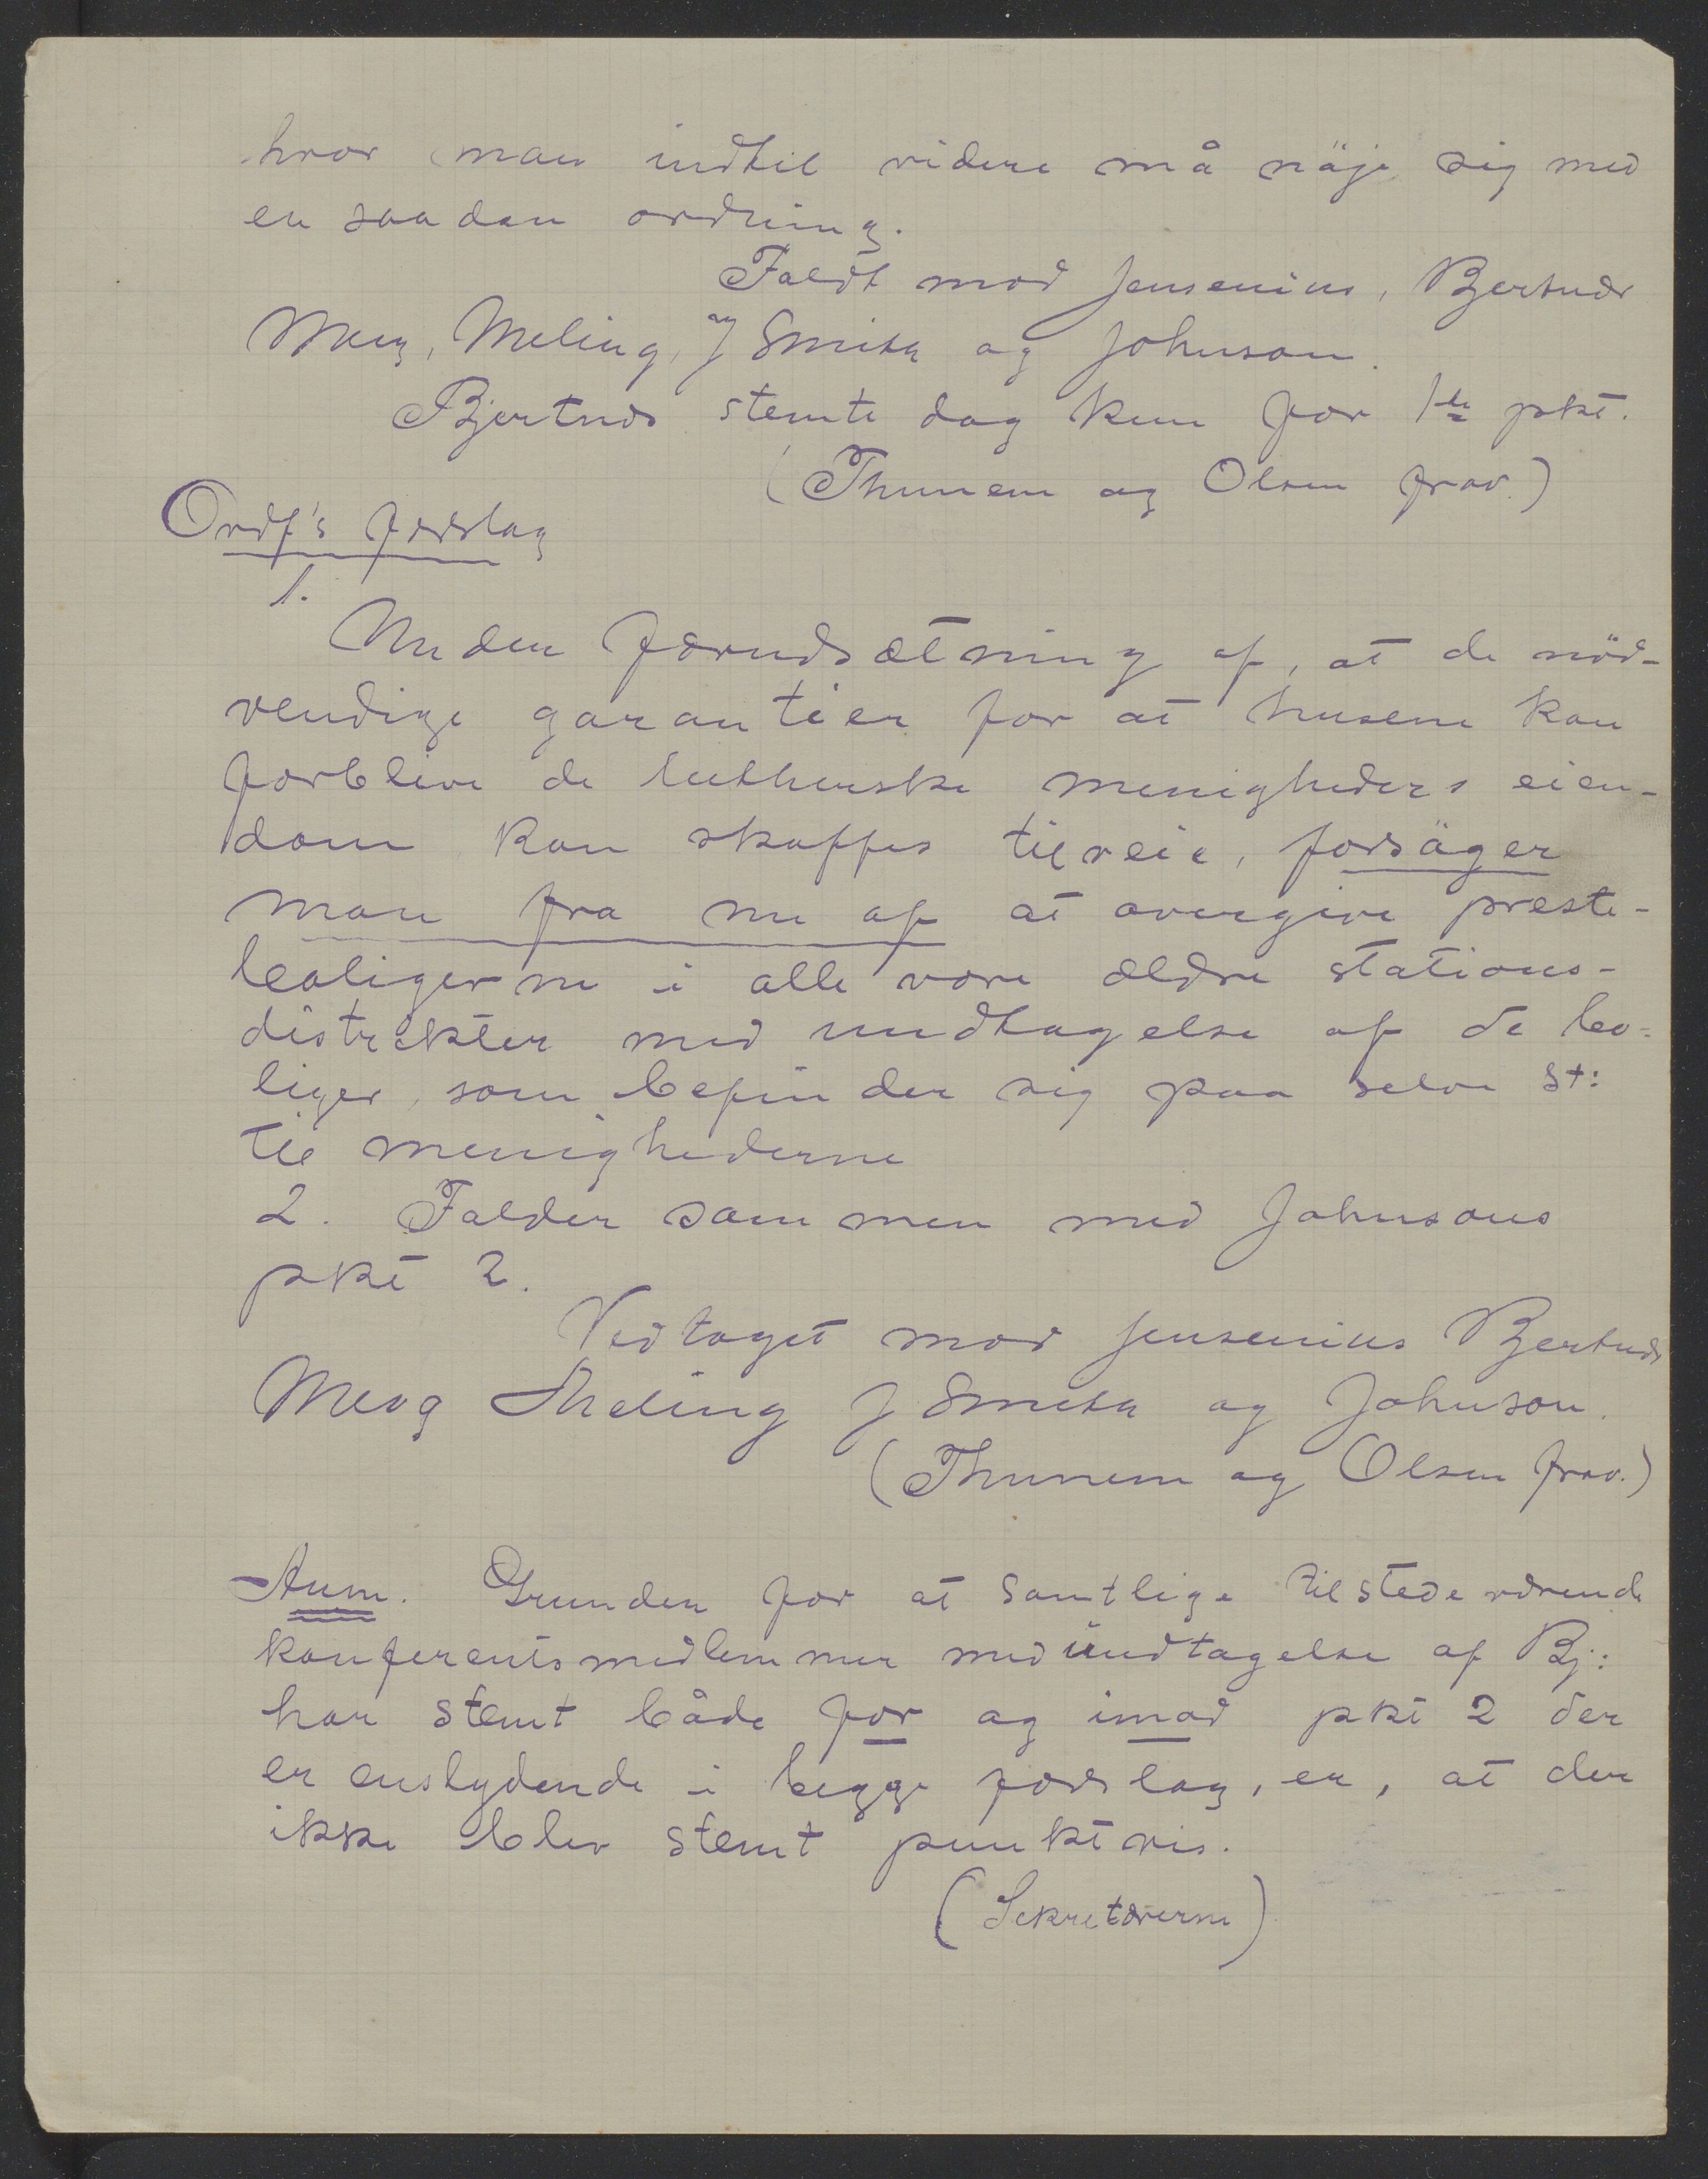 hvor man indtil videre må nöje sig med
en saadan ordning.
Faldt mod Jensenius, Bjertnæs
Meeg, Meling, og J Smith og Johnson.
Bjertnæs stemte dog kun for 1ste pkt.
(Thunem og Olsen frav.)
Ordf's forslag
1.
Under forudsætning af, at de nöd-
vendige garantier for at husene kan
forblive de lutherske menigheders eien-
dom kan skaffes tilveie, forsöger
man fra nu af at overgive preste-
boligerne i alle vore ældre stations-
distrikter med undtagelse af de bo-
liger, som befinder sig paa selve St:
til menighederne
2. Falder sammen med Johnsons
pkt 2.
Vedtaget mod Jensenius Bjertnæs
Meeg Meling J Smith og Johnson.
(Thunem og Olsen frav.)
Anm. Grunden for at samtlige tilstedeværende
konferentsmedlemmer med undtagelse af Bj:
har stemt både for og imod pkt 2 der
er enslydende i begge forslag, er, at der
ikke blev stemt punktvis.
(Sekretærerne)